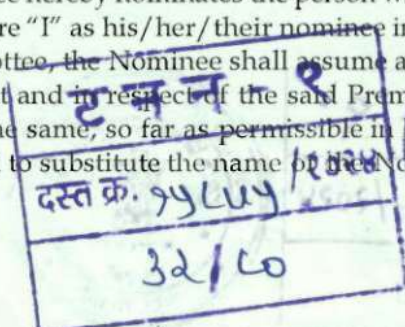 ee hereby nominates the person w
re “I” as his/her/their nominee in
ottee, the Nominee shall assume a
t and in respect of the said Prem
he same, so far as permissible in
to substitute the name of the No
ट न न - १
दस्त क्र. १५८७५ / २०२४
३२ / ८०